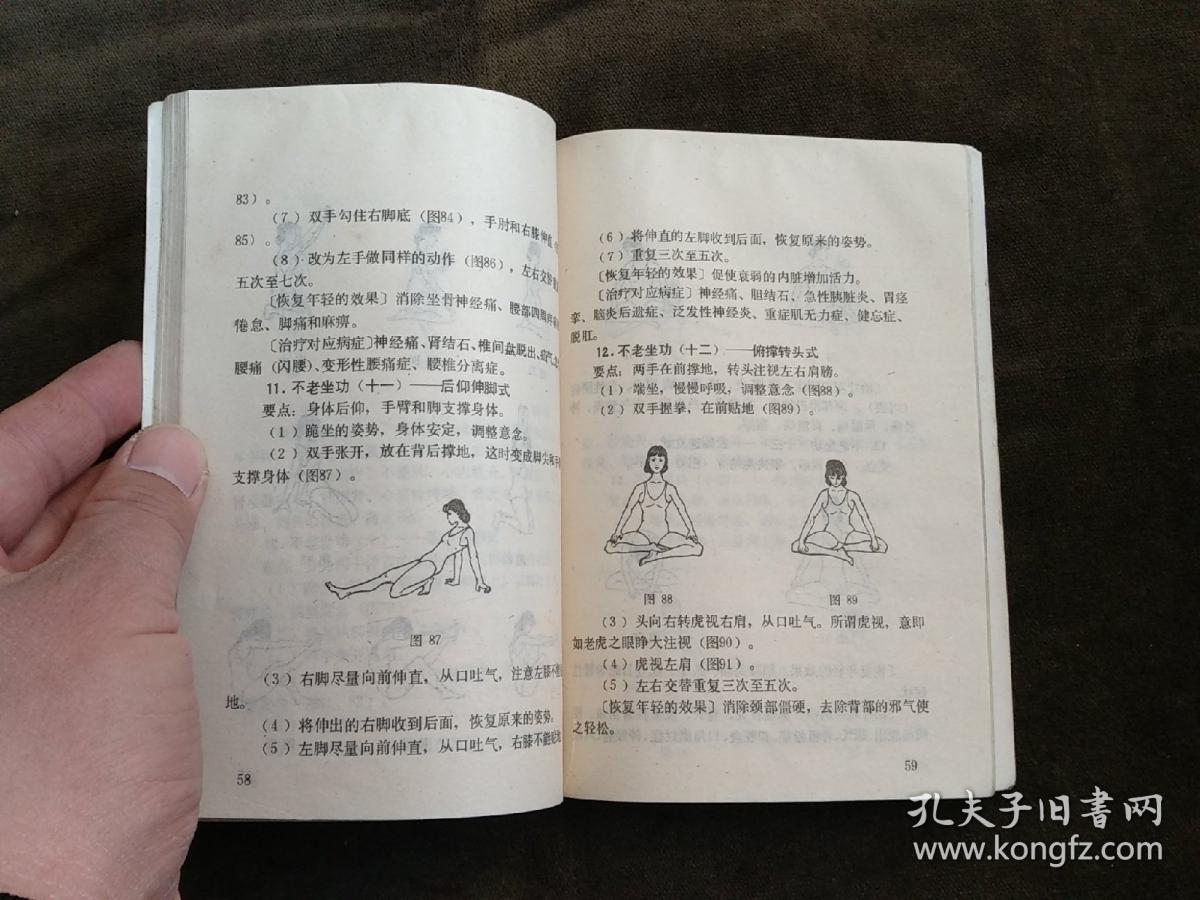 83）。
（7）双手勾住右脚底（图84），手肘和右膝伸直
85）。
（8）改为左手做同样的动作（图86），左右交替
五次至七次。
〔恢复年轻的效果〕消除坐骨神经痛、腰部四周
倦怠、脚痛和麻痹。
〔治疗对应病症〕神经痛、肾结石、椎间盘脱出、疝气、
腰痛（闪腰）、变形性腰痛症、腰椎分离症。
11.不老坐功（十一）——后仰伸脚式
要点：身体后仰，手臂和脚支撑身体。
（1）跪坐的姿势，身体安定，调整意念。
（2）双手张开，放在背后撑地，这时变成脚尖和手
支撑身体（图87）。
图 87
（3）右脚尽量向前伸直，从口吐气，注意左膝不
地。
（4）将伸出的右脚收到后面，恢复原来的姿势。
（5）左脚尽量向前伸直，从口吐气，右膝不能
58
（6）将伸直的左脚收到后面，恢复原来的姿势。
（7）重复三次至五次。
〔恢复年轻的效果〕促使衰弱的内脏增加活力。
〔治疗对应病症〕神经痛、胆结石、急性胰脏炎、胃痉
挛、脑炎后遗症、泛发性神经炎、重症肌无力症、健忘症、
脱肛。
12.不老坐功（十二）——俯撑转头式
要点：两手在前撑地，转头注视左右肩膀。
（1）端坐，慢慢呼吸，调整意念（图88）。
（2）双手握拳，在前贴地（图89）。
图 88
图 89
（3）头向右转虎视右肩，从口吐气。所谓虎视，意即
如老虎之眼睁大注视（图90）。
（4）虎视左肩（图91）。
（5）左右交替重复三次至五次。
〔恢复年轻的效果〕消除颈部僵硬，去除背部的邪气使
之轻松。
59
孔夫子旧书网
www.kongfz.com